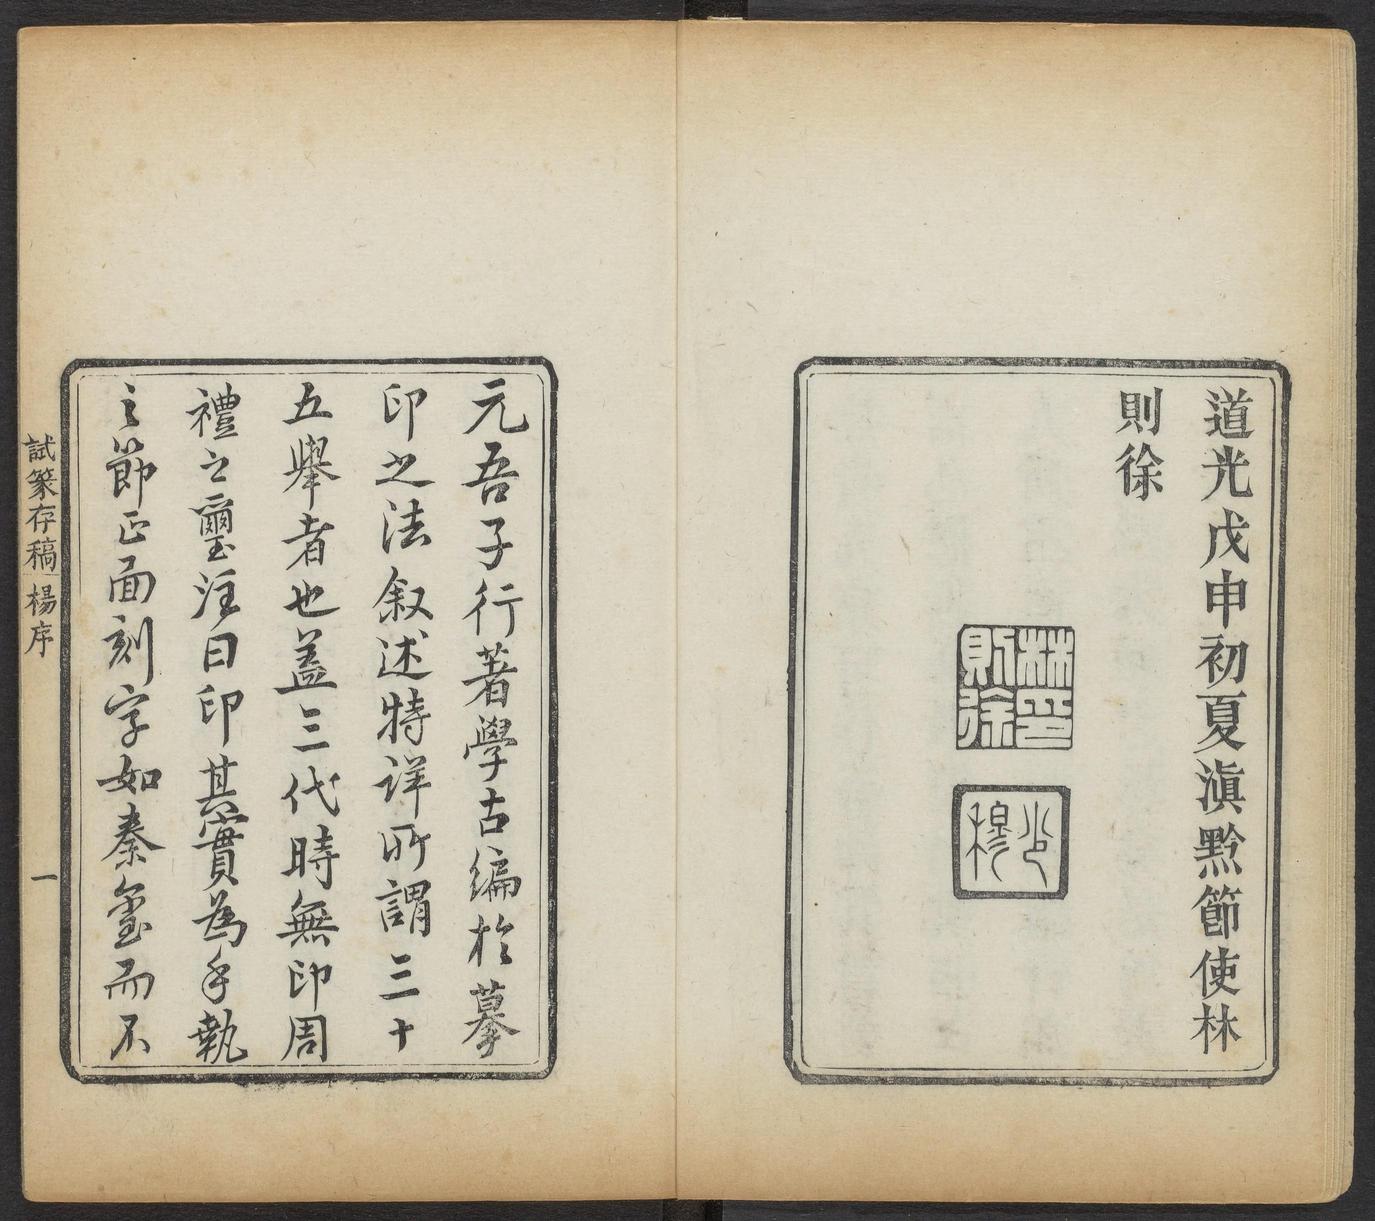 道光戊申初夏滇黔節使林
則徐
林印
則徐
少
穆
元吾子行著學古編於摹
印之法叙述特詳所謂三十
五舉者也蓋三代時無印周
禮之璽注曰印其實為手執
之節正面刻字如秦璽而不
試篆存稿 楊序 一